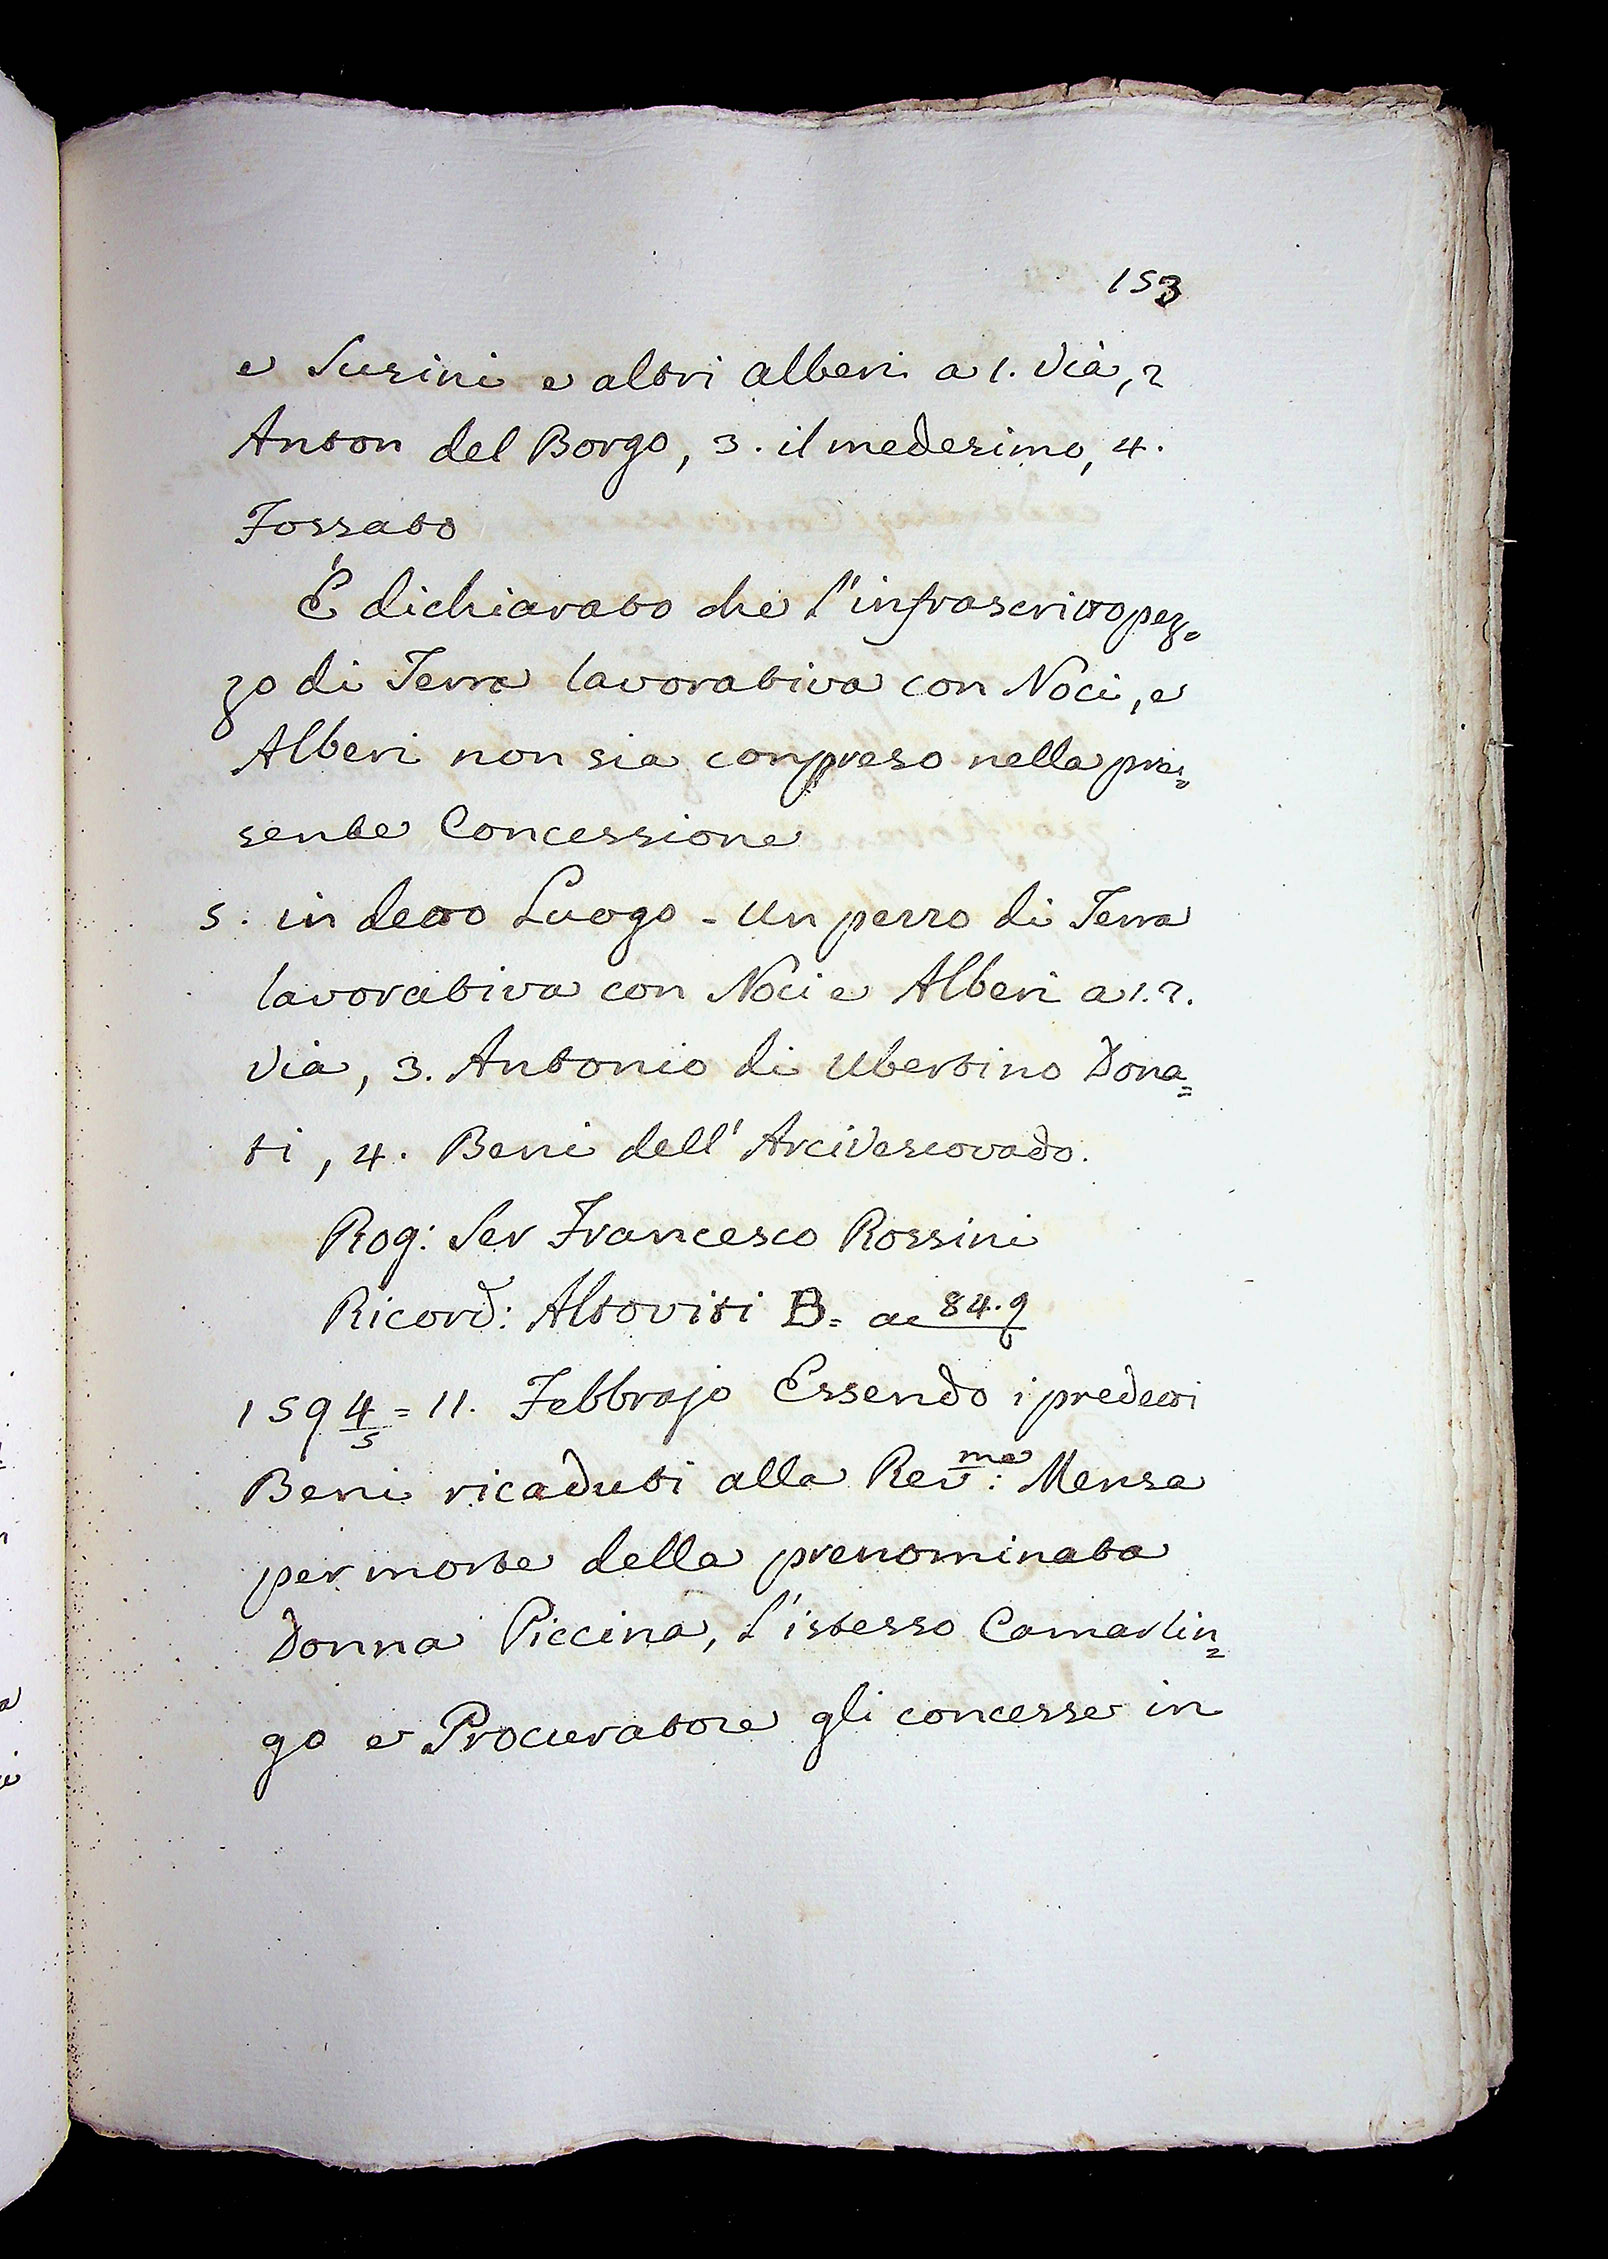 153
e Susini e altri alberi a 1. Via, 2
Anton del Borgo, 3. il medesimo, 4.
Fossato
È dichiarato che l'infrascritto pez=
zo di Terra lavorativa con Noci, e
Alberi non sia compreso nella pre=
sente Concessione
5. in detto Luogo - Un pezzo di Terra
lavorativa con Noci e Alberi a 1. 2.
Via, 3. Antonio di Ubertino Dona=
ti, 4. Beni dell' Arcivescovado.
Rog: Ser Francesco Rossini
Ricord: Altoviti B= a 84.9
1594/5 = 11. Febbrajo Essendo i predetti
Beni ricaduti alla Rev:ma Mensa
per morte della prenominata
Donna Piccina, l'istesso Camarlin=
go e Procuratore gli concesse in